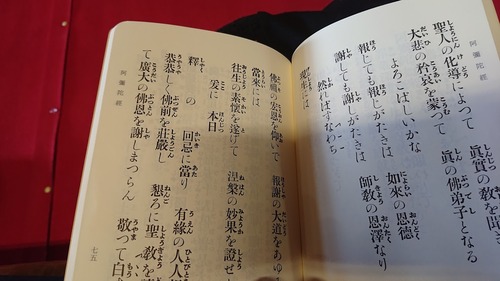 聖人の化導によって 眞實の教を
大悲の矜哀を蒙って 眞の佛弟子となる
よろこばしいかな
報じても報じがたきは 如來の恩德
謝しても謝しがたきは 師教の恩澤なり
然ればすなわち
現生には
佛祖の宏恩を仰いで 報謝の大道をあゆ
當來には
往生の素懷を遂げて 涅槃の妙果を證せ
爰に 本日
釋 の 回忌に當り 有緣の人人
恭恭しく佛前を莊嚴し 懇ろに聖教を
て廣大の佛恩を謝しまつらん 敬って白
阿彌陀經
七五